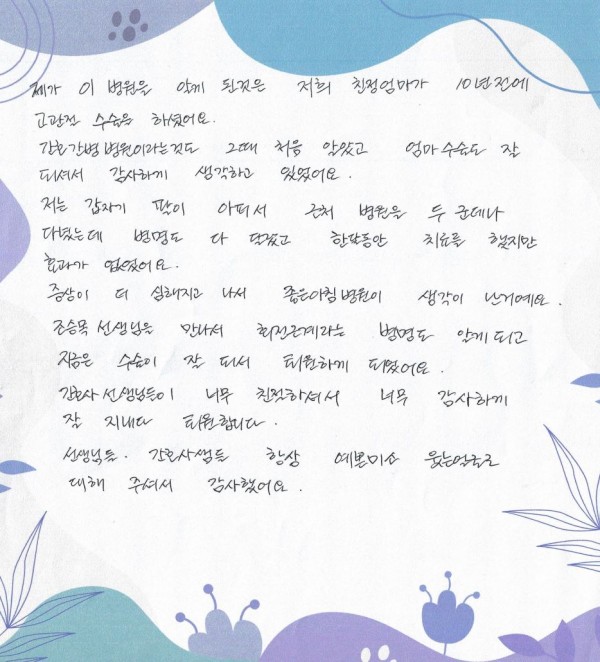 제가 이 병원을 알게 된것은 저희 친정엄마가 10년전에
고관절 수술을 하셨어요.
간호간병 병원이라는것도 그때 처음 알았고 엄마 수술도 잘
되셔서 감사하게 생각하고 있었어요.
저는 갑자기 팔이 아파서 근처 병원을 두 군데나
다녔는데 병명도 다 달랐고 한달동안 치료를 했지만
효과가 없었어요.
증상이 더 심해지고 나서 좋은아침병원이 생각이 난거예요.
조승목 선생님을 만나서 회전근개라는 병명도 알게되고
지금은 수술이 잘 되서 퇴원하게 되었어요.
간호사 선생님들이 너무 친절하셔서 너무 감사하게
잘 지내다 퇴원합니다.
선생님들. 간호사쌤들 항상 예쁜미소 웃는얼굴로
대해 주셔서 감사했어요.